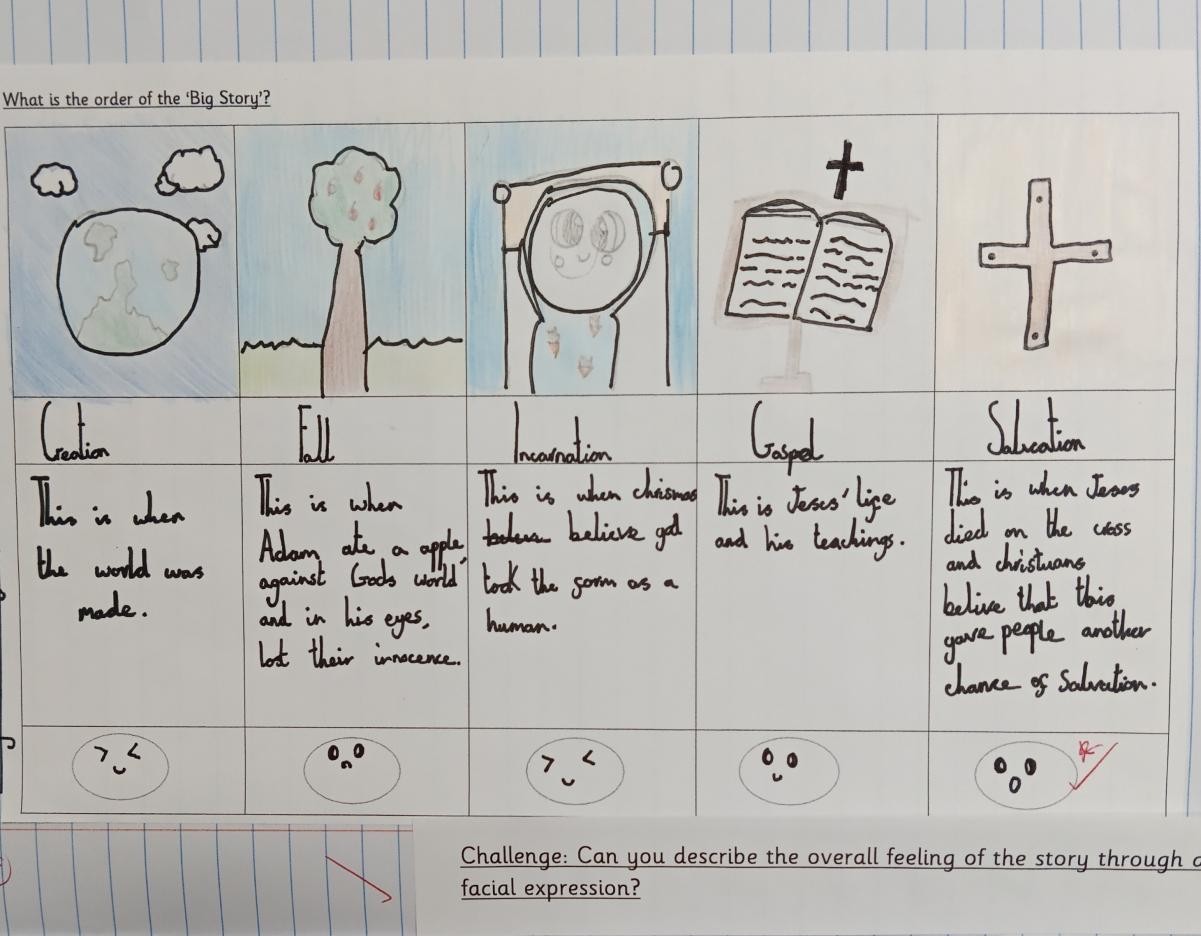 What is the order of the 'Big Story'?
Creation
Fall
Incarnation
Gospel
Salvation
This is when
the world was
made.
This is when
Adam ate a apple,
against Gods world
and in his eyes,
lost their innocence.
This is when chrismas
believe god
took the form as a
human.
This is Jesus' life
and his teachings.
This is when Jesus
died on the cross
and christians
belive that this
gave people another
chance of Salvation.
Challenge: Can you describe the overall feeling of the story through
facial expression?